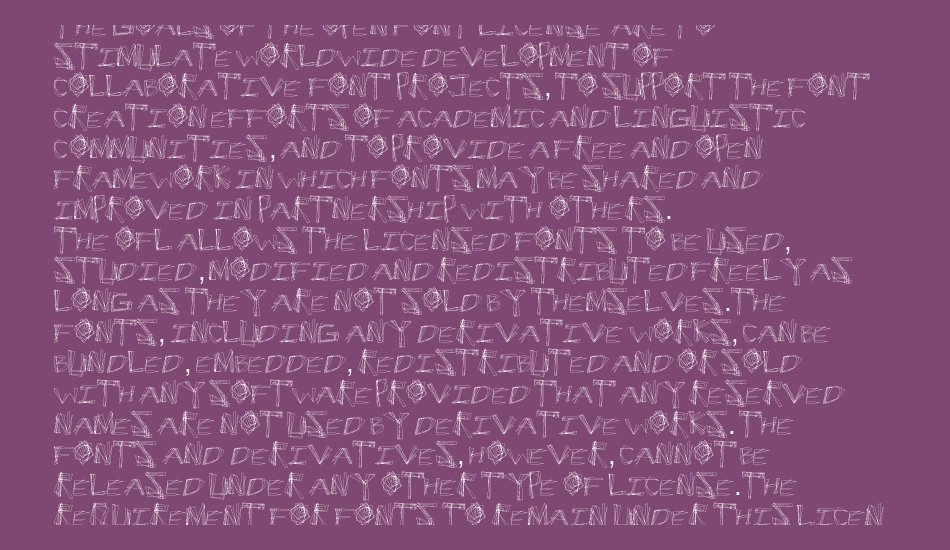 THE GOALS OF THE OPEN FONT LICENSE ARE TO
STIMULATE WORLDWIDE DEVELOPMENT OF
COLLABORATIVE FONT PROJECTS, TO SUPPORT THE FONT
CREATION EFFORTS OF ACADEMIC AND LINGUISTIC
COMMUNITIES, AND TO PROVIDE A FREE AND OPEN
FRAMEWORK IN WHICH FONTS MAY BE SHARED AND
IMPROVED IN PARTNERSHIP WITH OTHERS.
THE OFL ALLOWS THE LICENSED FONTS TO BE USED,
STUDIED, MODIFIED AND REDISTRIBUTED FREELY AS
LONG AS THEY ARE NOT SOLD BY THEMSELVES. THE
FONTS, INCLUDING ANY DERIVATIVE WORKS, CAN BE
BUNDLED, EMBEDDED, REDISTRIBUTED AND OR SOLD
WITH ANY SOFTWARE PROVIDED THAT ANY RESERVED
NAMES ARE NOT USED BY DERIVATIVE WORKS. THE
FONTS AND DERIVATIVES, HOWEVER, CANNOT BE
RELEASED UNDER ANY OTHER TYPE OF LICENSE. THE
REQUIREMENT FOR FONTS TO REMAIN UNDER THIS LICEN